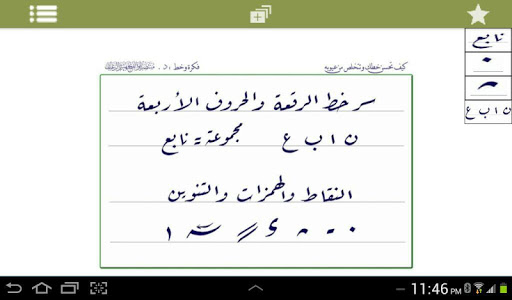 كيف تحسن خطك وتتخلص من عيوبه
فكرة وخط / د .
سر خط الرقعة والحروف الأربعة
ن ا ب ع مجموعة = نابع
النقاط والهمزات والتنوين
نابع
ن ا ب ع
11:46 PM